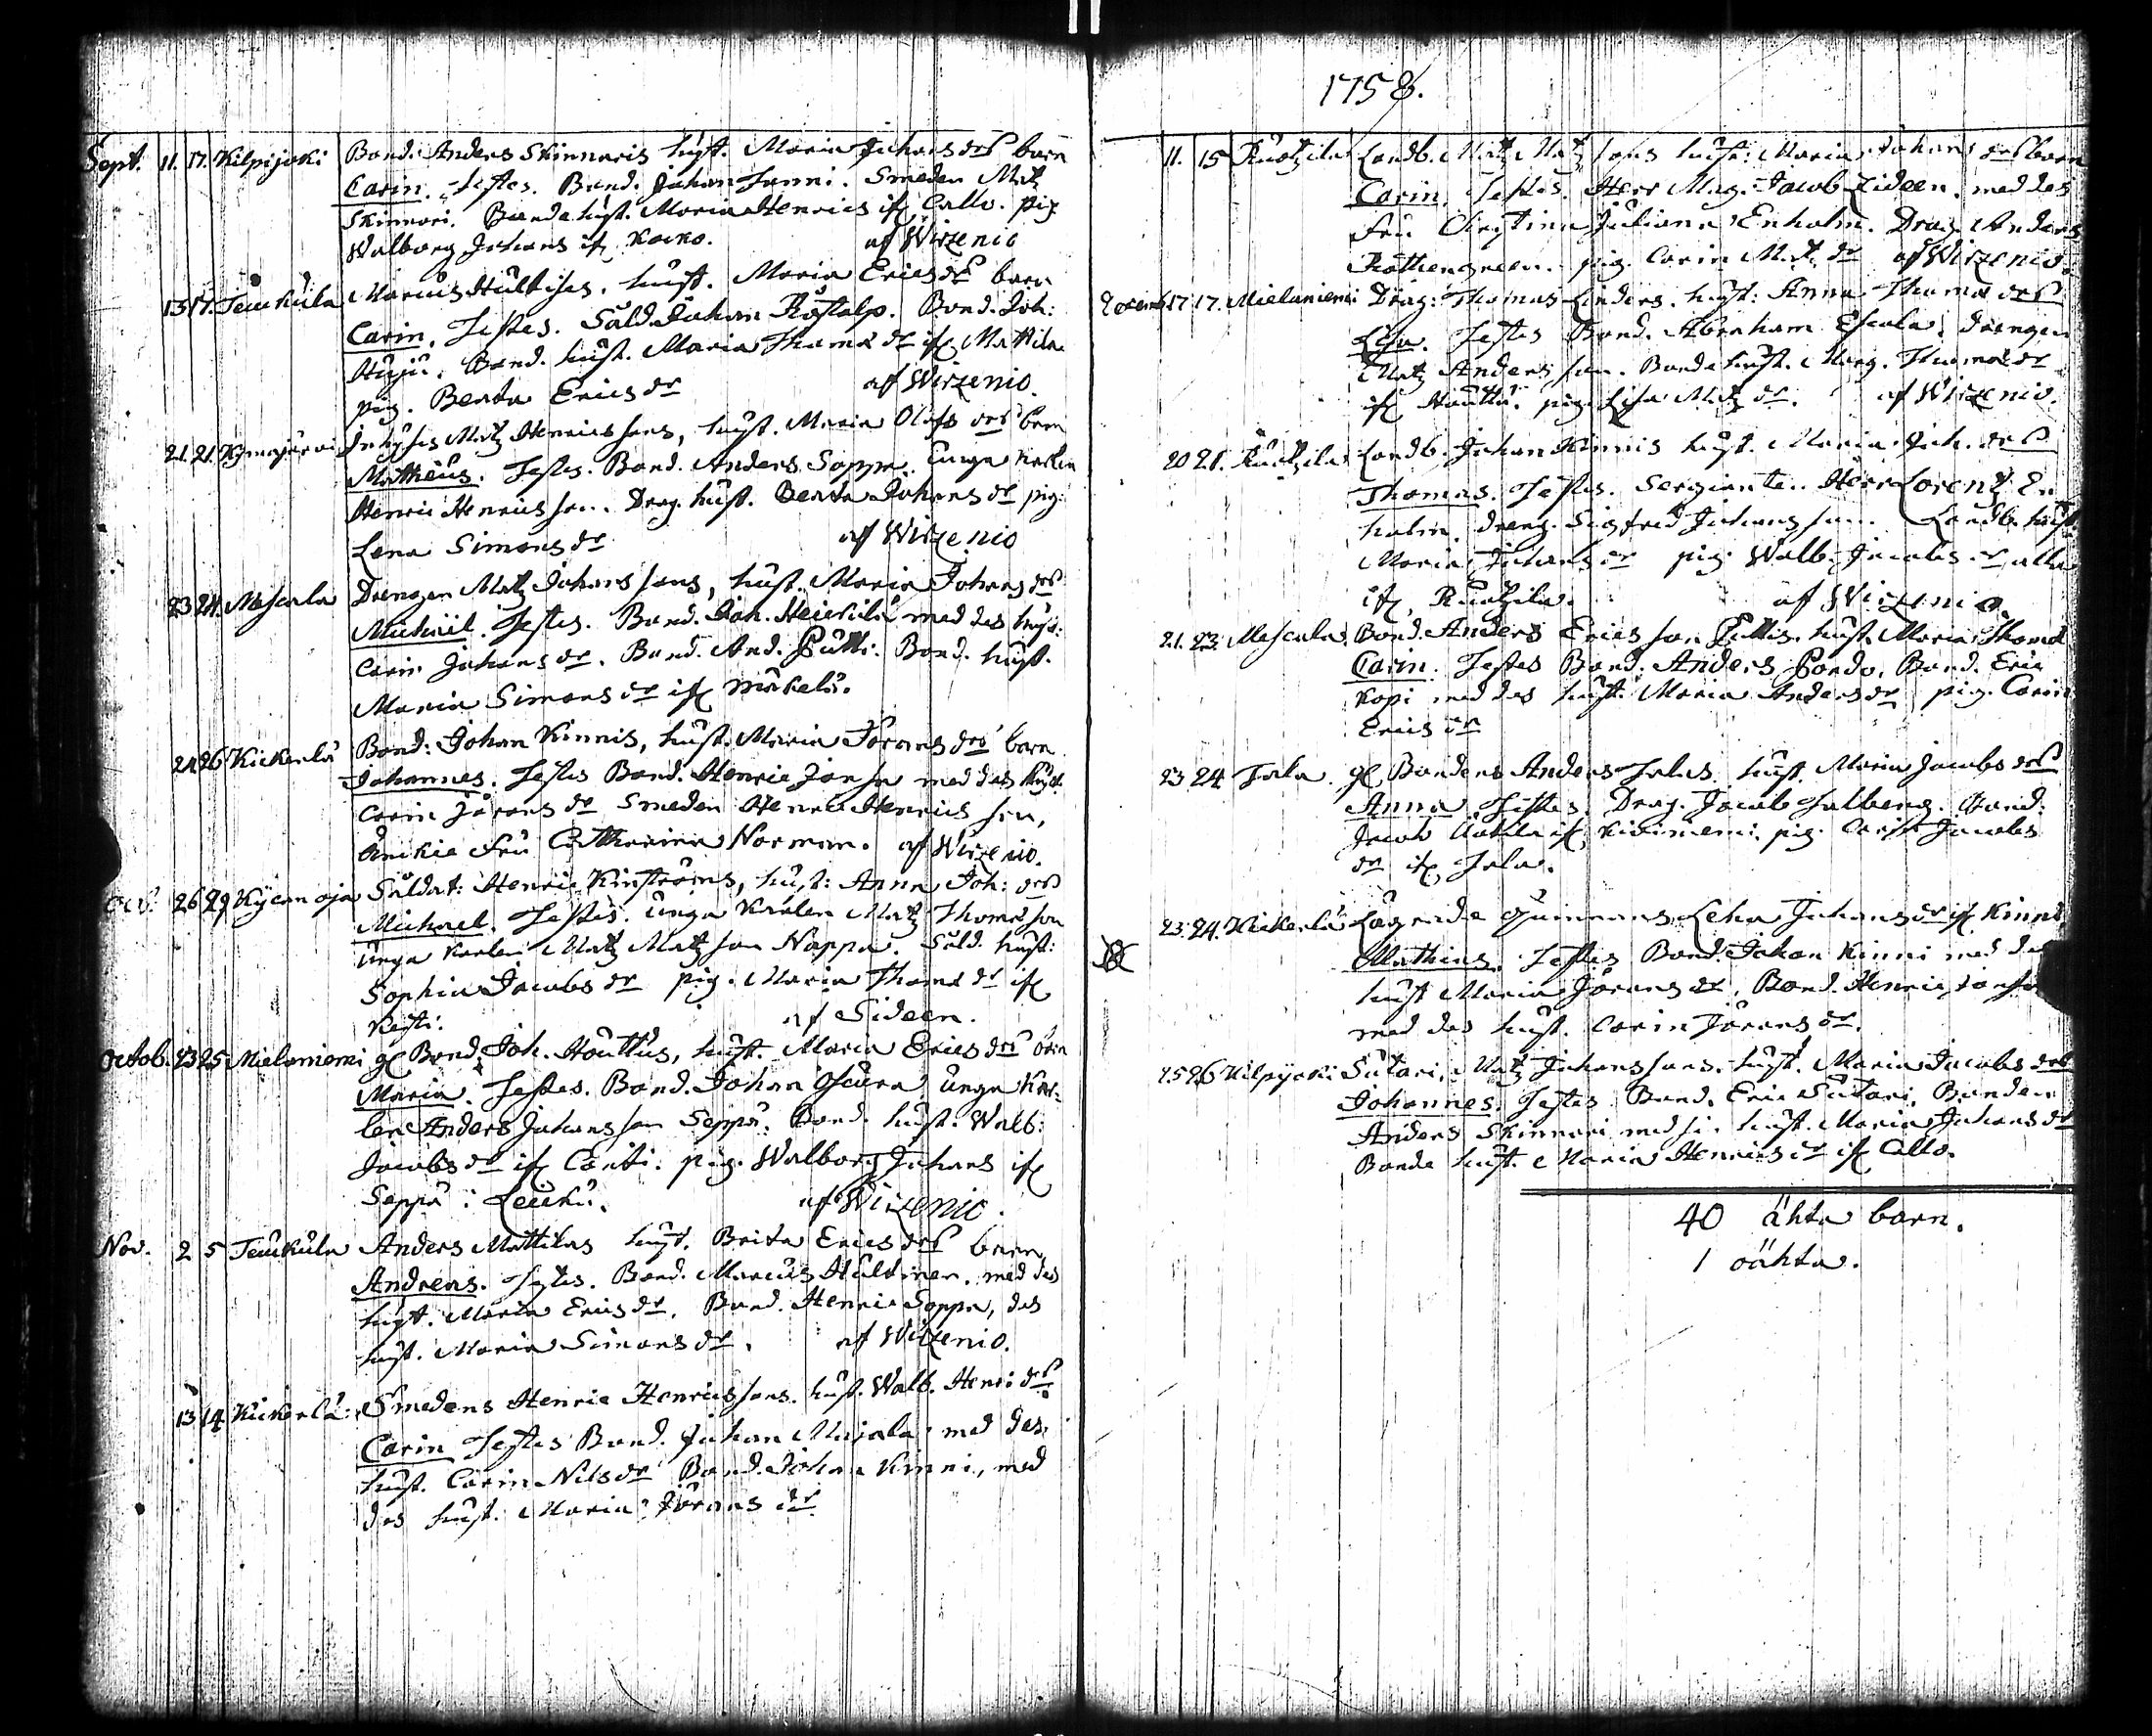 Sept. 11. 17. Kilpijoki Bond. Anders Skinnaris hust. Maria Johans drs barn
Carin. Testes. Bond. Johan Janni. Smeden Matz
Skinnari. Bonde hust. Maria Henrics if. Callo. pig.
Walborg Johans if. Kocko. af Wirzenio
13 17. Teukula Marcus Hultises. hust. Maria Erics dr barn
Carin. Testes. Sald. Johan Bond. Joh:
Huju. Bond. hust. Maria Thomæ dr if. Mattila
pig. Beata Erics dr af Wirzenio.
21. 21. Matz Henrics sons, hust. Maria Olofs drs barn
Mattheus. Testes. Bond. Anders Soppa. Unga Karlen
Henric Henrics son. Drag. hust. Beata Johans dr pig.
Lena Simons dr af Wirzenio
23 24. Mescala Drengen Matz Johans sons, hust. Maria Johans drs
Michaël. Testes. Bond. Joh. Heickilä med des hust:
Carin Johans dr. Bond. And. Putti. Bond. hust.
Maria Simons dr if. Mäkelä.
24 26 Kickerlä Bond: Johan Kinnis, hust. Maria Jörans drs barn
Johannes. Testes Bond. Henric Jonsa med des hust.
Carin Jörans dr Smeden Henric Henrics son,
Änckie Fru Catharina Norman. af Wirzenio.
26 29 Kycan oja Soldat: Henric Kinströms, hust: Anna Joh: drs
Michael. Testes. Unga Karlen Matz Thomæ son
unga Karlen Matz Matz son Nappa. Sold. hust:
Sophia Jacobs dr pig. Maria Thomæ dr if.
af Sideen.
Octob. 23 25 Mielaniemi Bond. Joh. Houttus, hust. Maria Erics drs barn
Maria. Testes. Bond. Johan Unga Kar-
len Anders Johans son Seppä. Bond. hust. Walb:
Jacobs dr if. Conti. pig. Walborg Johans if.
Seppä: Leuku. af Wirzenio.
Nov. 2 5 Teukula Anders Mattilas hust. Brita Erics drs barn
Andreas. Testes. Bond. Marcus Hultinen. med des
hust. Maria Erics dr. Bond. Henric Soppa, des
hust. Maria Simons dr. af Wirzenio.
13 14 Kickerlä: Smedens Henric Henrics sons. hust. Walb. Henri drs
Carin Testes Bond. Johan Maiala med des
hust. Carin Nils dr Bond. Johan Kinni, med
des hust. Maria Jörans dr
1758.
11. 15 Ruotzila Landb. Matz Matz sons hust: Maria Johans drs barn
Carin. Testes. Herr Mag. Jacob Zideen. med des
Fru Christina Juliana Enholm. Drag. Anders
pig. Carin Matz dr af Wirzenio.
17 17. Mielaniemi Drag: Thomas Linders. hust: Anna Thomæ drs
Lisa. Testes Bond. Abraham Escola, drengen
Matz Anders son. Bonde hust. Marg. Thomæ dr
if. Houttu. pig. Lisa Matz dr. af Wirzenio.
20 21. Ruotzila Landb. Johan Kinnis hust. Maria Joh. drs
Thomas. Testes. Sergianten Herr Lorentz En
holm, dreng. Sigfred Johans son. Landb. hust.
Maria Johans dr pig. Walb. Jacobs dr alla
if. Ruotzila. af Wirzenio.
21. 23. Mescala Bond. Anders Erics son Puttis. hust. Maria Thomæ
Carin. Testes Bond. Anders Pordo. Bond. Eric
Kopi med des hust. Maria Anders dr pig. Carin
Erics dr
23 24 Jala. Bondens Anders Jalas. hust. Maria Jacobs drs
Anna. Testes. Drag. Jacob Jalberg. Bond.
Jacob if. Kiviniemi. pig. Jacobs
dr if. Jala.
23. 24. Kickerlä Lägrade qwinnans Lena Johans dr if. Kinni
Mathias. Testes Bond. Johan Kinni med des
hust Maria Jörans dr, Bond. Henric
med des hust. Carin Jörans dr.
25 26 Kilpijoki Sutari. Matz Johans sons. hust. Maria Jacobs drs
Johannes. Testes Bond. Eric Sutari. Bonden
Anders Skinnari med si. hust. Maria Johans dr
Bonde hust. Maria Henrics dr if. Callo.
40 ähta barn.
1 oähta.